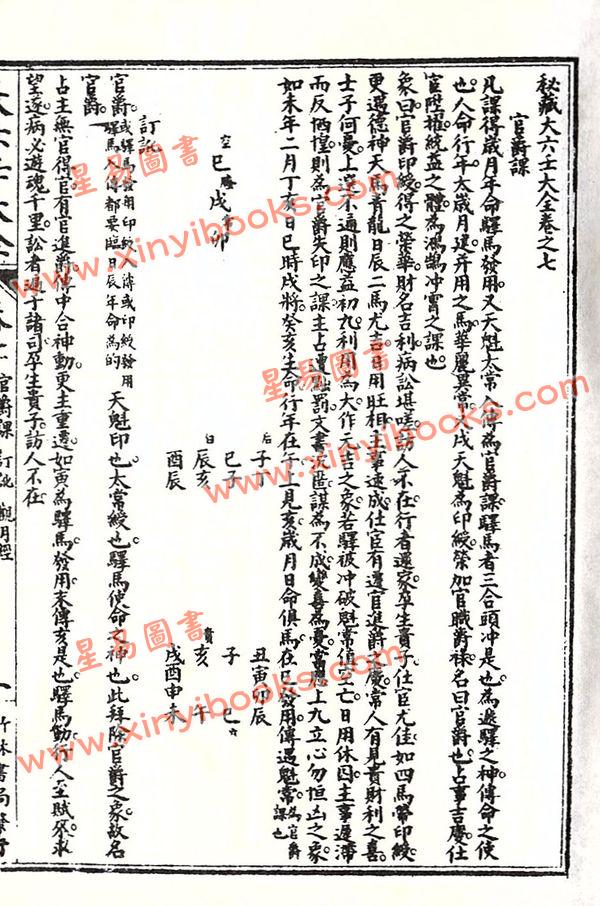 秘藏大六壬大全卷之七
官爵課
凡課得歲月年命驛馬發用又天魁太常入傳為官爵課驛馬者三合頭冲是也為遞驛之神傳命之使
也人命行年太歲月建并用之馬華麗異常又戌天魁為印綬榮加官職爵祿名曰官爵也占事吉慶仕
宦陞擢統益之體為鴻鵠冲霄之課也
象曰官爵印綬得之榮華財名吉利病訟堪嗟訪人不在行者還家孕生貴子仕宦尤佳如四馬帶印綬
更遇德神天馬青龍日辰二馬尤吉日用旺相主事速成仕宦有遷官進爵之慶常人有見貴財利之喜
士子何憂上達不通則應益初九利用為大作元吉之象若驛被冲破魁常值空亡日用休囚主事遲滯
而反栖惶則為官爵失印之課主占遭黜罰文書沉匿謀為不成變喜為憂當應上九立心勿恒凶之象
如未年二月丁亥日巳時戌將癸亥生命行年在午上見亥歲月日命俱馬在巳發用傳遇魁常為官爵課也
空 巳 戌 卯
后 子丁
巳子
白 辰亥
酉辰
丑寅卯辰
子 巳
貴 亥 午
戌酉申未
訂訛
官爵或驛馬發用印綬入傳或印綬發用
驛馬入傳都要臨日辰年命為的
天魁印也太常綬也驛馬使命之神也此拜除官爵之象故名
官爵
占主無官得官有官進爵傳中合神動更主重遷如寅為驛馬發用末傳亥是也驛馬動行人至賦來求
望遂病必遊魂千里訟者過于諸司孕生貴子訪人不在
大六壬大全
官爵課 訂訛 觀月經
一
竹林書局
星易圖書
www.xinyibooks.com
星易圖書
www.xinyibooks.com
星易圖書
www.xinyibooks.com
星易圖書
www.xinyibooks.com